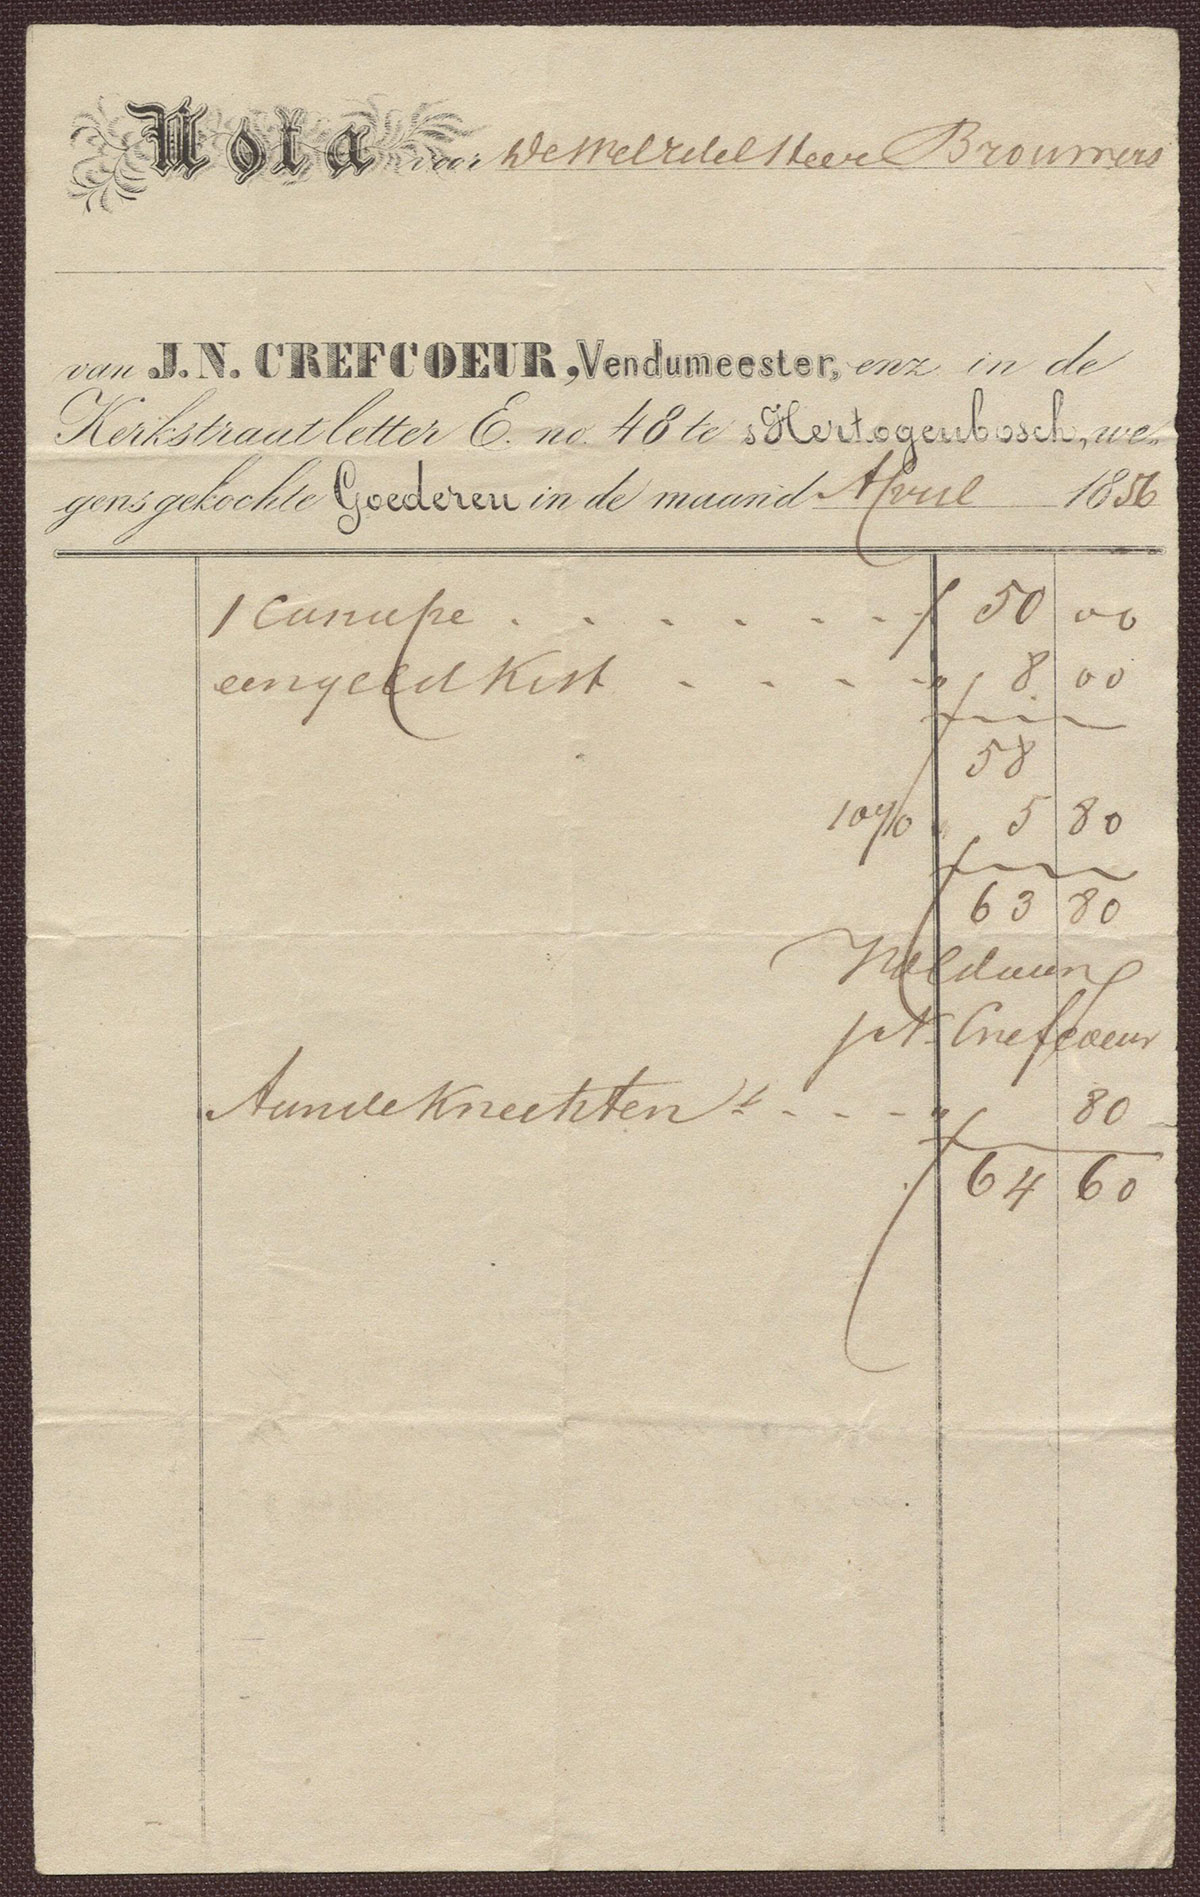 Nota voor de WelEdel Heer Brouwers
van J.N. CREFCOEUR, Vendumeester, enz. in de
Kerkstraat letter E. no. 48 te sHertogenbosch, we-
gens gekochte Goederen in de maand April 1856
1 Canape . . . . . . . f 50 00
een geld Kist . . . . " 8 00
f 58
10% " 5 80
f 63 80
Voldaan
J N Crefcoeur
Aan de Knechten . . . " 80
f 64 60